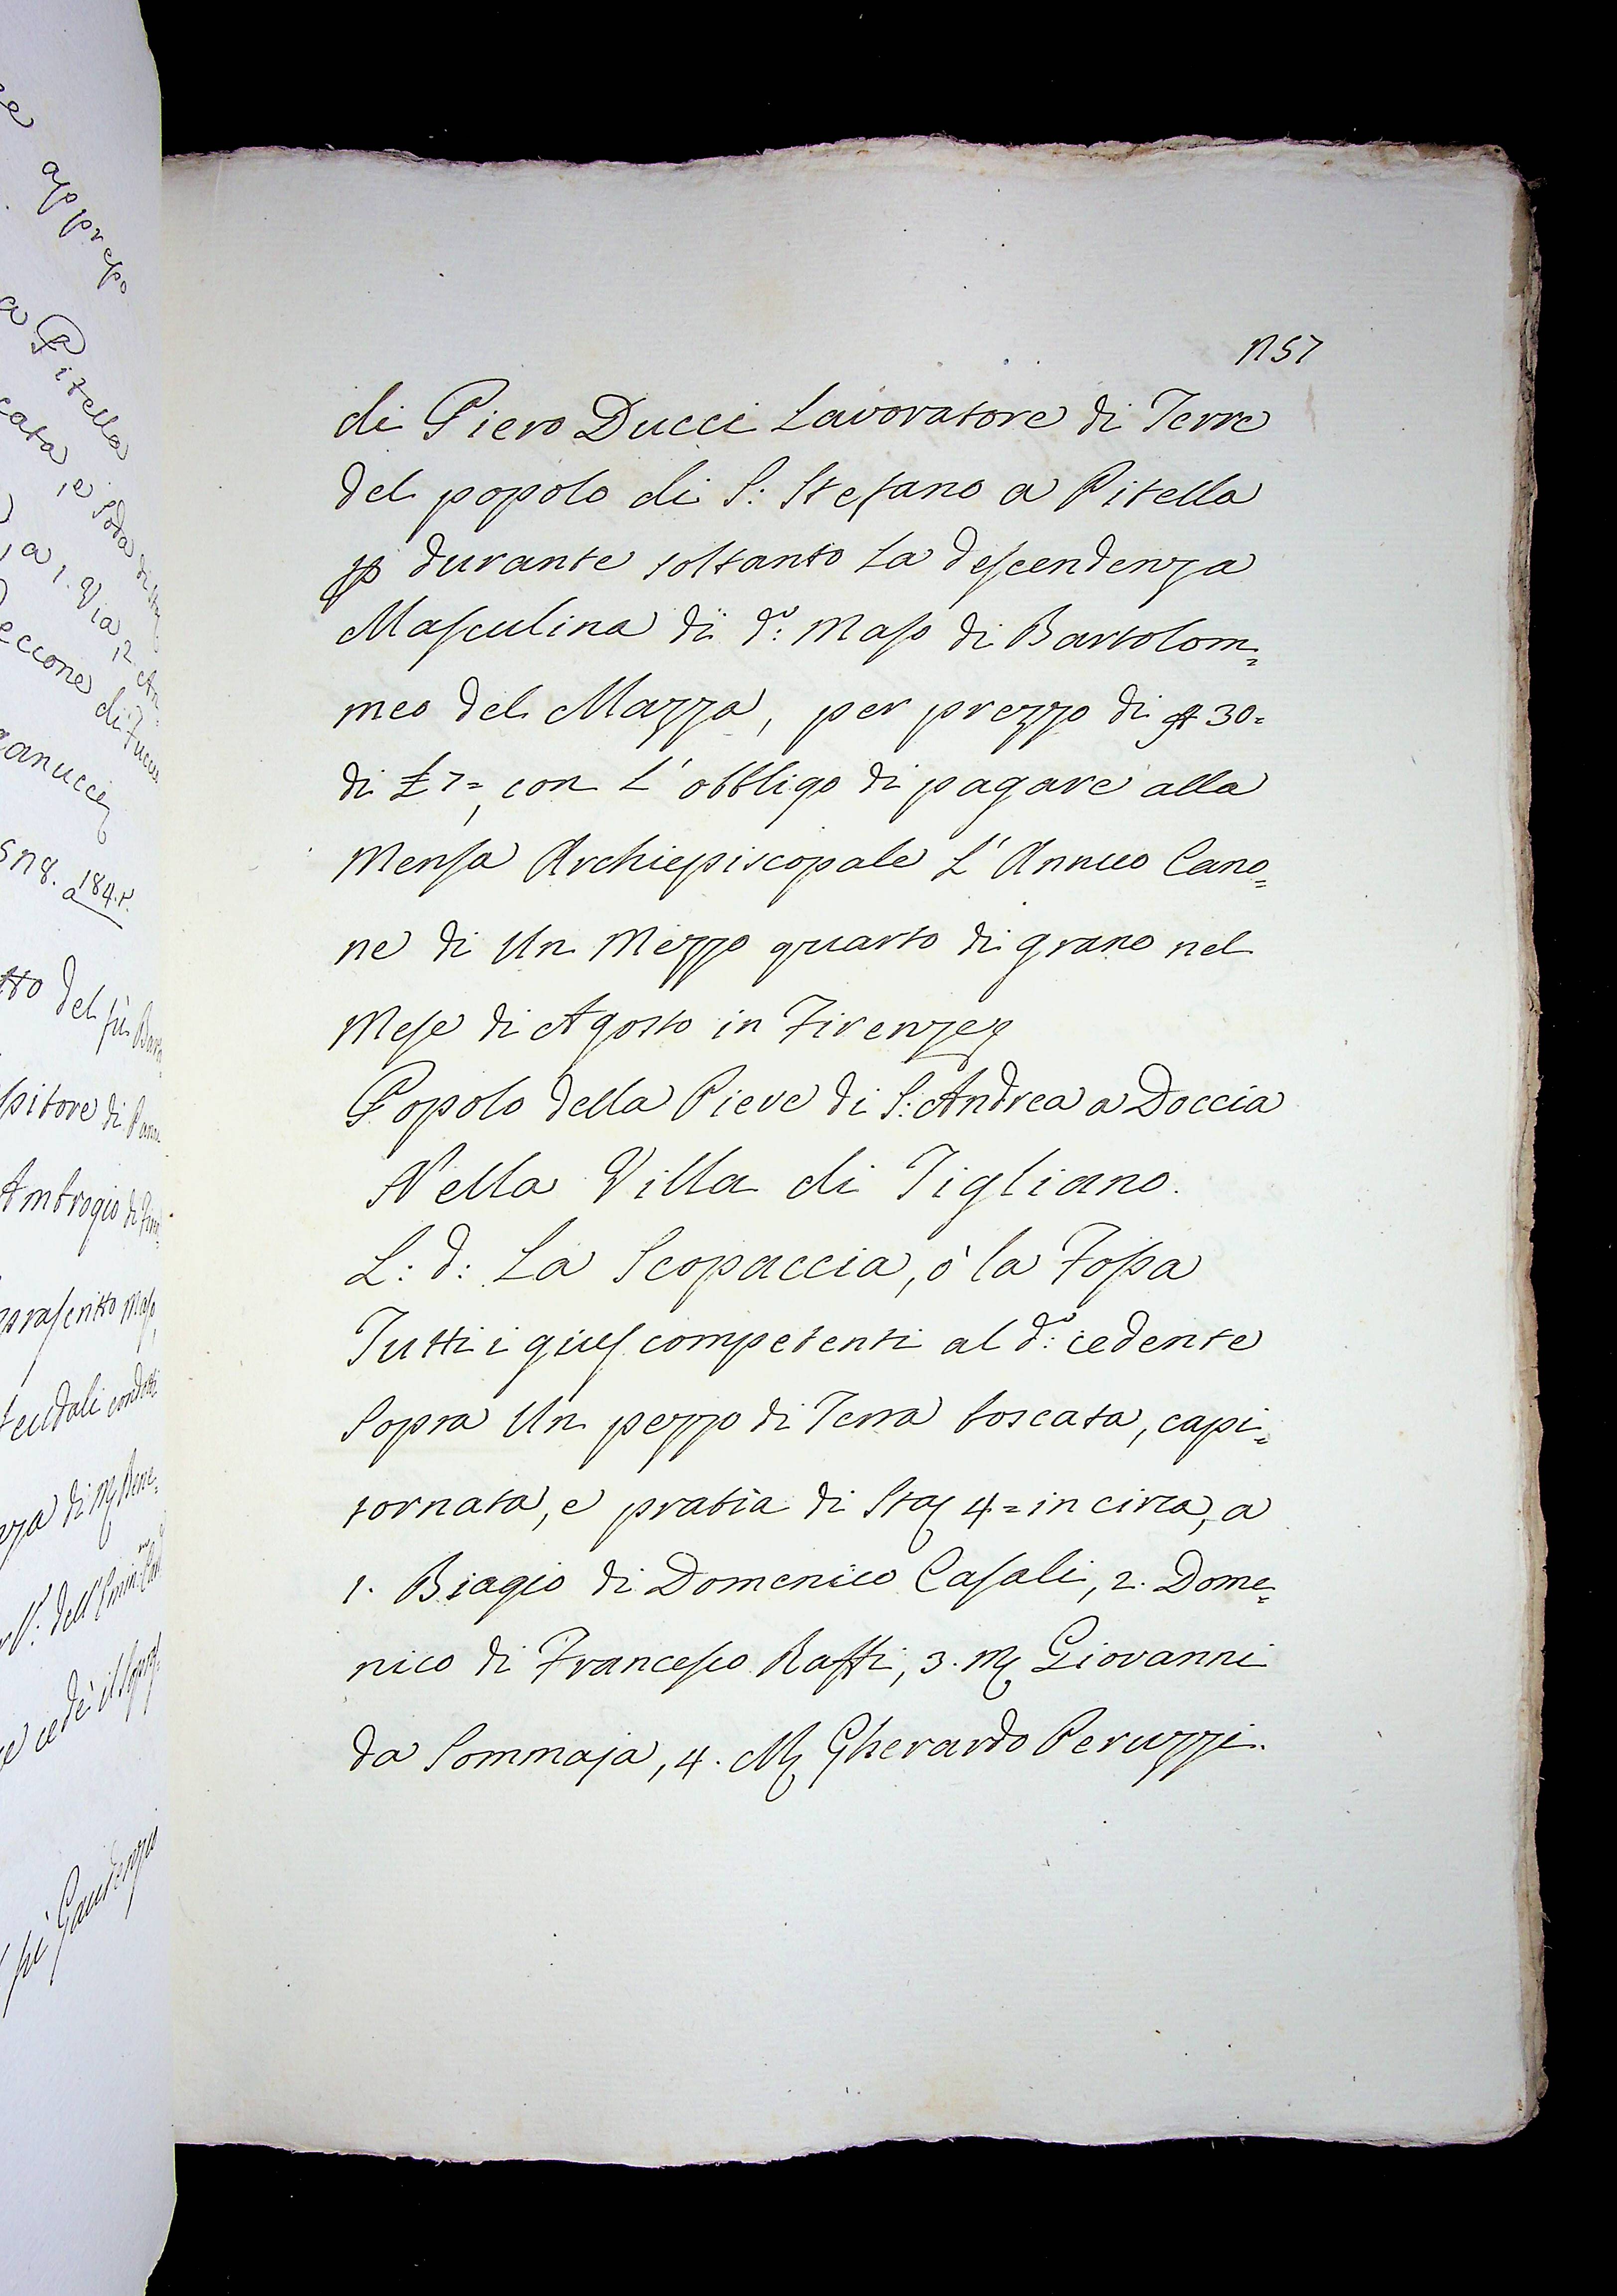 1157
di Piero Ducci Lavoratore di Terre
del popolo di S: Stefano a Pitella
p durante soltanto La descendenza
Masculina di d.º: Maso di Bartolom=
meo del Mazza, per prezzo di 30=
di £ 7=, con L' obbligo di pagare alla
Mensa Archiepiscopale L' Annuo Cano=
ne di Un Mezzo quarto di grano nel
Mese di Agosto in Firenze
Popolo della Pieve di S: Andrea a Doccia
Nella Villa di Tigliano.
L: d: La Scopaccia, ò la Fossa
Tutti i gius competenti al d.º: cedente
Sopra Un pezzo di Terra boscata, capi=
tornata, e pratia di Sta 4= in circa, a
1. Biagio di Domenico Casali, 2. Dome=
nico di Francesco Raffi, 3. M Giovanni
da Sommaja, 4. M Gherardo Peruzzi.
appresso
a Pitella
cata, e Soda di
, a 1. Via, 2. An=
eccone di Tucci
ganucci
184.
tto del fù Bart
pitore di Pann
Ambrogio di Fire
prascritto Maso,
feudali condotti
nza di M Bene=
V: dell' Emin.mo Card
e cedè il sopra
Gaudenzio